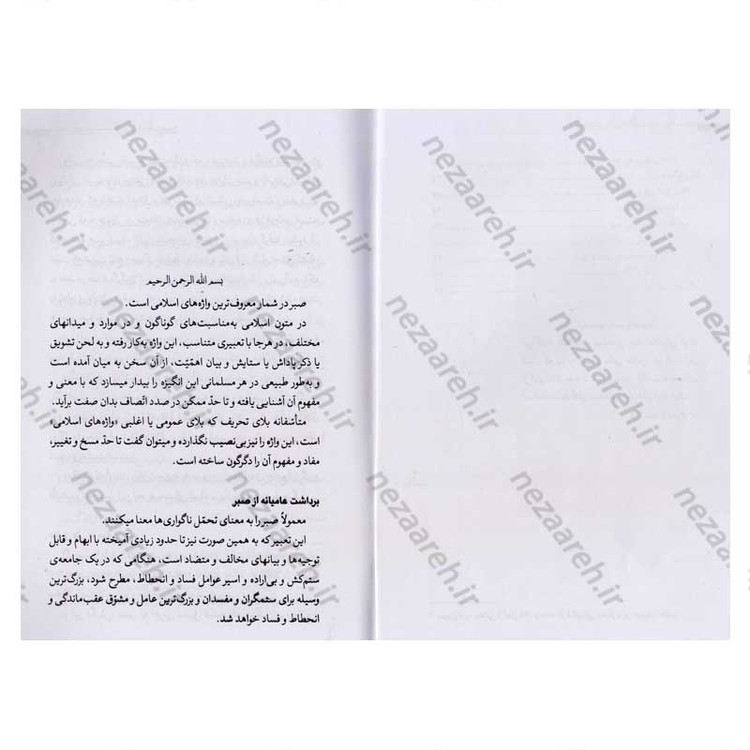 بسم الله الرحمن الرحیم
صبر در شمار معروف‌ترین واژه‌های اسلامی است.
در متون اسلامی به‌مناسبت‌های گوناگون و در موارد و میدانهای
مختلف، در هرجا با تعبیری متناسب، این واژه به‌کار رفته و به لحن تشویق
یا ذکر پاداش یا ستایش و بیان اهمّیّت، از آن سخن به میان آمده است
و به‌طور طبیعی در هر مسلمانی این انگیزه را بیدار میسازد که با معنی و
مفهوم آن آشنایی یافته و تا حدّ ممکن در صدد اتّصاف بدان صفت برآید.
متأسّفانه بلای تحریف که بلای عمومی یا اغلبی «واژه‌های اسلامی»
است، این واژه را نیز بی‌نصیب نگذارده و میتوان گفت تا حدّ مسخ و تغییر،
مفاد و مفهوم آن را دگرگون ساخته است.
برداشت عامیانه از صبر
معمولاً صبر را به معنای تحمّل ناگواری‌ها معنا میکنند.
این تعبیر که به همین صورت نیز تا حدود زیادی آمیخته با ابهام و قابل
توجیه‌ها و بیانهای مخالف و متضاد است، هنگامی که در یک جامعه‌ی
ستم‌کش و بی‌اراده و اسیر عوامل فساد و انحطاط، مطرح شود، بزرگ‌ترین
وسیله برای ستمگران و مفسدان و بزرگ‌ترین عامل و مشوّق عقب‌ماندگی و
انحطاط و فساد خواهد شد.
nezaareh.ir
nezaareh.ir
nezaareh.ir
nezaareh.ir
nezaareh.ir
nezaareh.ir
nezaareh.ir
nezaareh.ir
nezaareh.ir